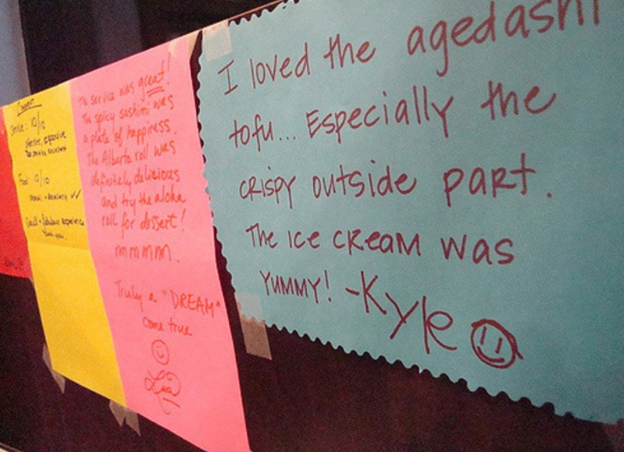 Comment
Service: 10/10
Food 10/10
The service was great!
The spicy sashimi was
a plate of happiness.
The Alberta roll was
definitely delicious
and try the aloha
roll for dessert!
mmmm.
Truly a "DREAM"
come true
Lisa
I loved the agedashi
tofu... Especially the
crispy outside part.
The ice cream was
YUMMY! -Kyle